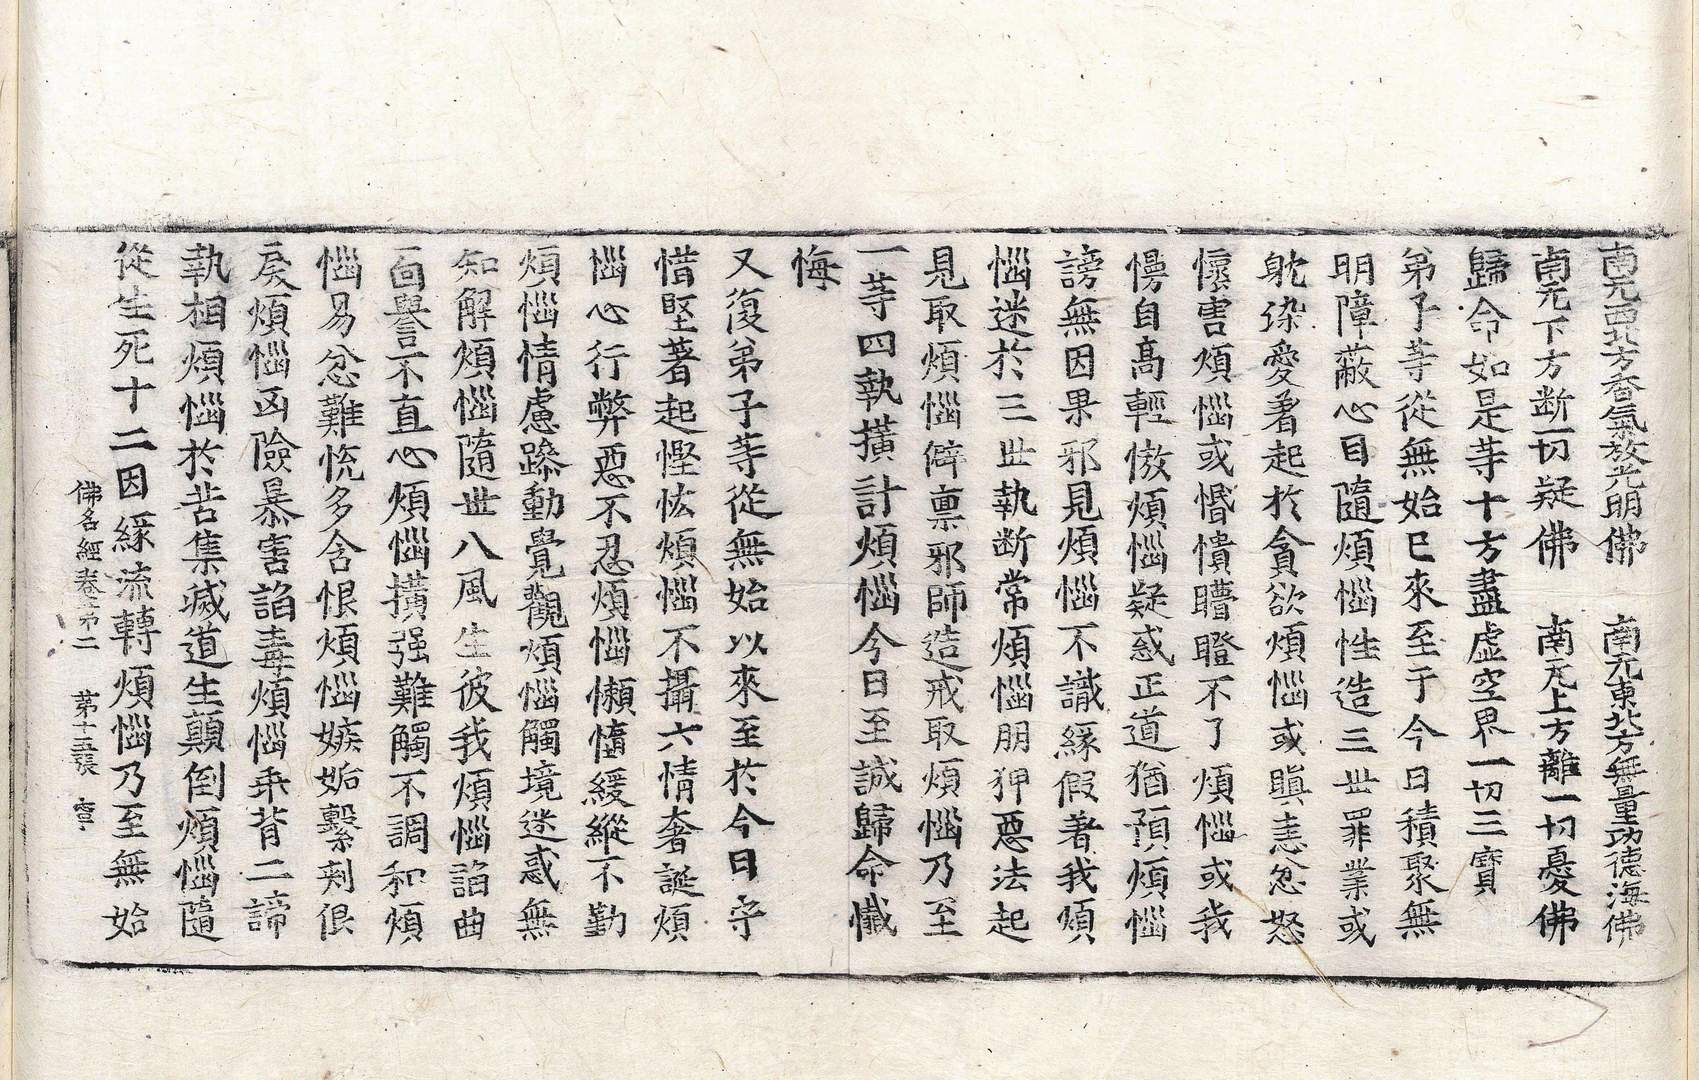 南无西北方香氣放光明佛　南无東北方無量功德海佛
南无下方断一切疑佛　南无上方離一切憂佛
歸命如是等十方盡虛空界一切三寶
弟子等從無始已來至于今日積聚無
明障蔽心目隨煩惱性造三世罪業或
躭染愛著起於貪欲煩惱或瞋恚忿怒
懷害煩惱或惛憒瞢瞪不了煩惱或我
慢自高輕慠煩惱疑惑正道猶預煩惱
謗無因果邪見煩惱不識緣假著我煩
惱迷於三世執断常煩惱朋狎惡法起
見取煩惱僻禀邪師造戒取煩惱乃至
一等四執擴計煩惱今日至誠歸命懺
悔
又復弟子等從無始以來至於今日守
惜堅著起慳悋煩惱不攝六情奢誕煩
惱心行弊惡不忍煩惱懶惰緩縱不勤
煩惱情慮躁動覺觀煩惱觸境迷惑無
知解煩惱隨世八風生彼我煩惱謟曲
面譽不直心煩惱擴强難觸不調和煩
惱易忿難恱多含恨煩惱嫉妬繫剌佷
戾煩惱凶險暴害謟毒煩惱乖背二諦
執相煩惱於苦集滅道生顛倒煩惱隨
從生死十二因緣流轉煩惱乃至無始
佛名經卷第二　第十五張